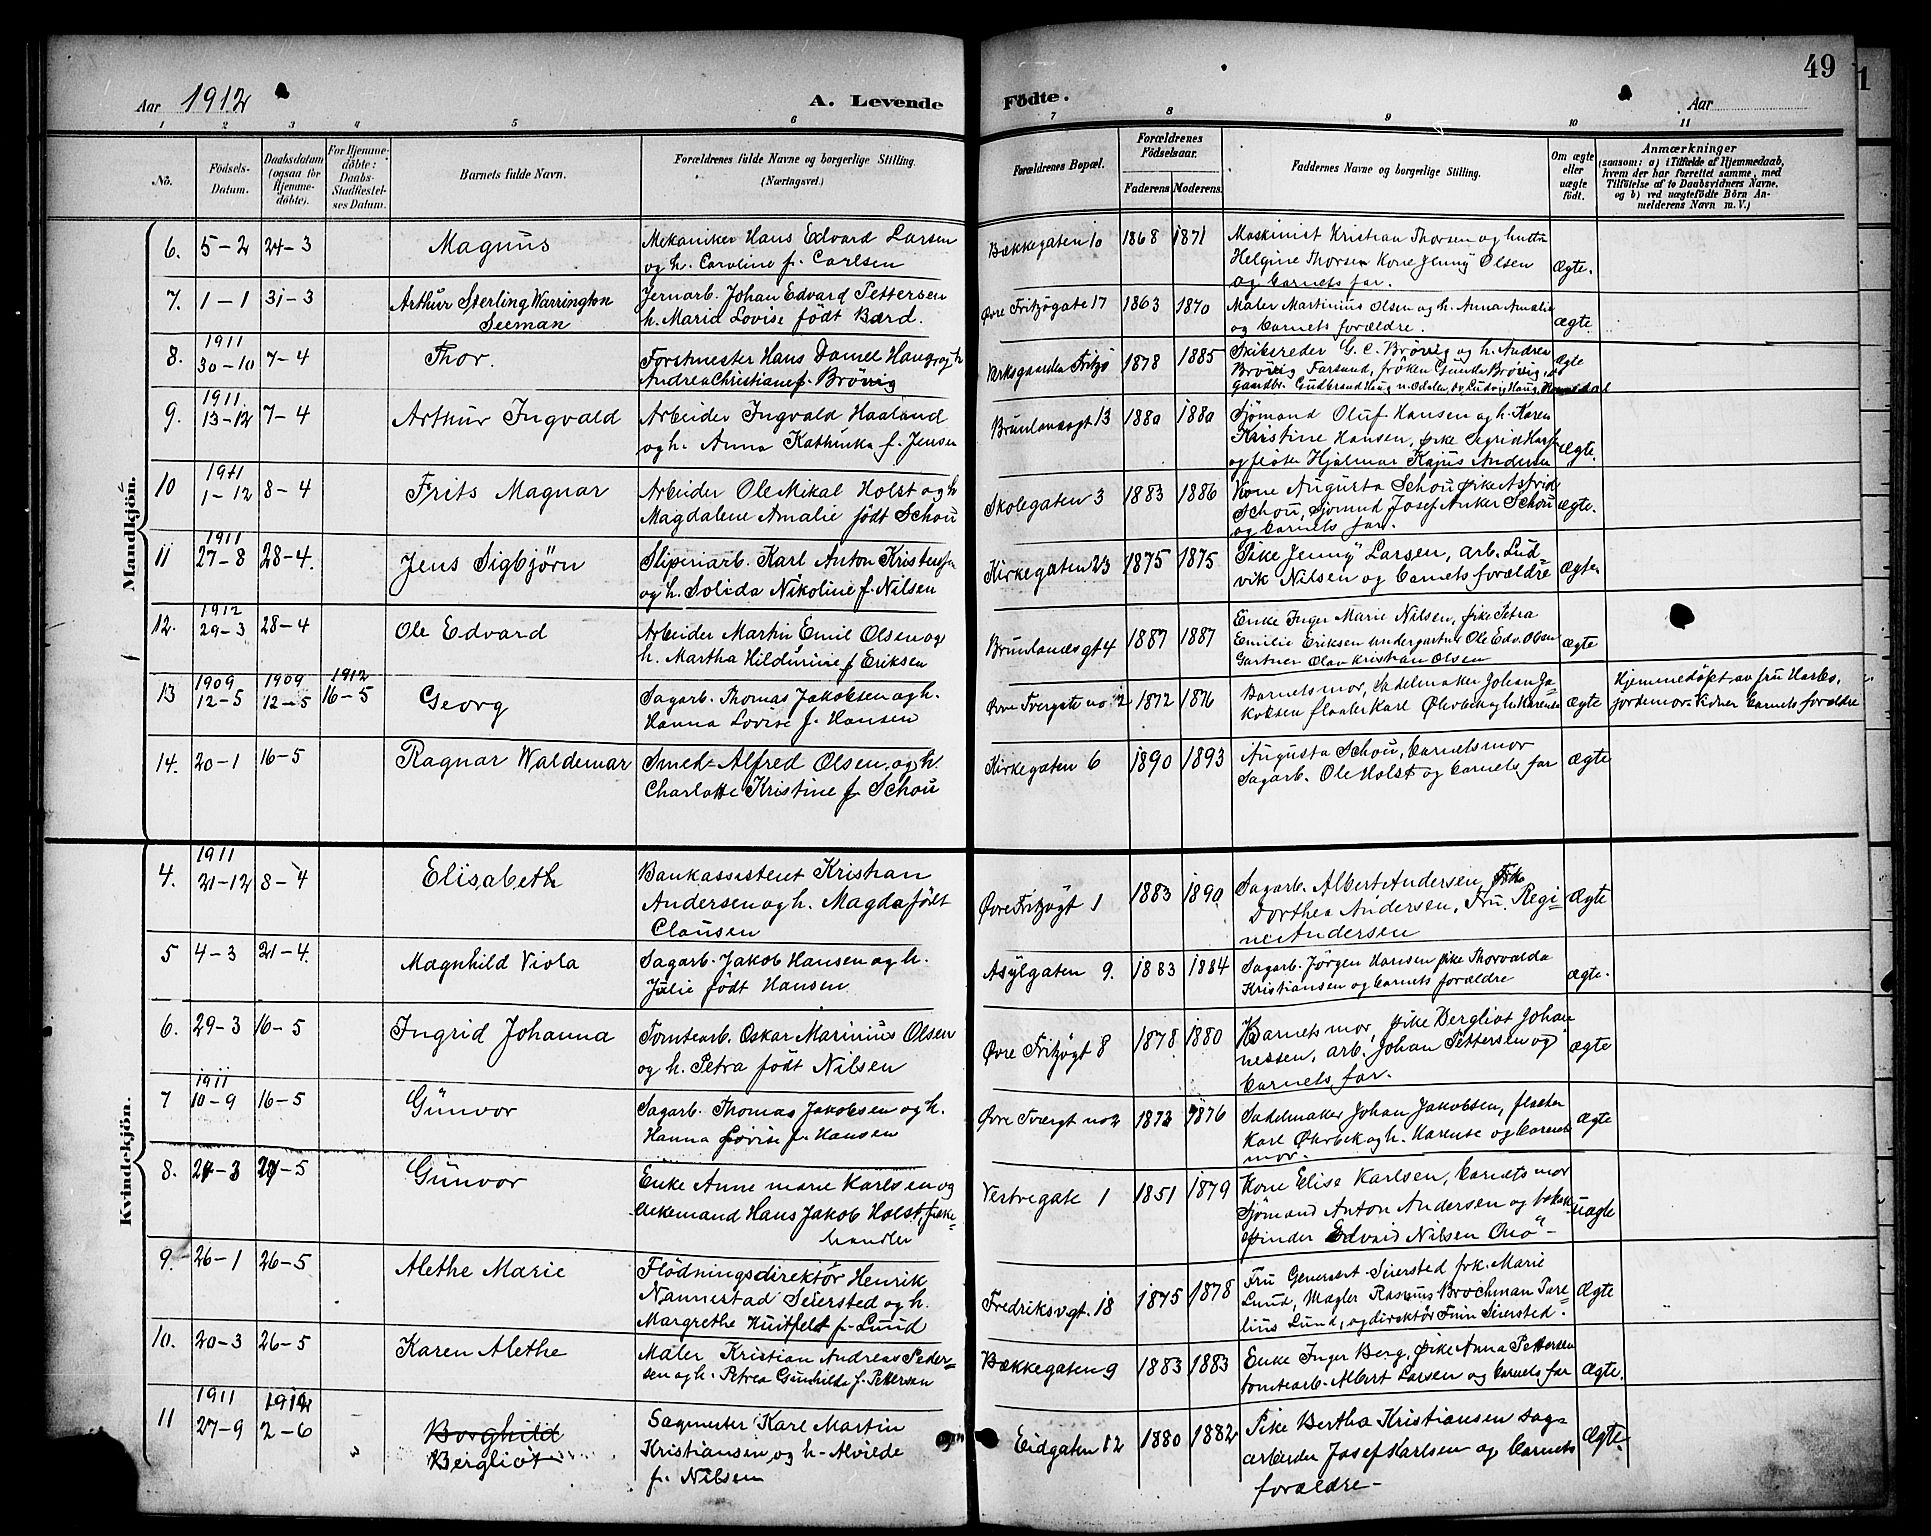 49
Aar 1912
A. Levende
Födte.
Aar
1 2 3 4 5 6 7 8 9 10 11
Nö.
Födsels-
Datum.
Daabsdatum
(ogsaa for
Hjemme-
döbte).
For Hjemme-
döbte:
Daabs-
Stadfæstel-
ses Datum.
Barnets fulde Navn.
Forældrenes fulde Navne og borgerlige Stilling.
(Næringsvei.)
Forældrenes Bopæl.
Forældrenes
Födselsaar.
Faderens. Moderens.
Faddernes Navne og borgerlige Stilling.
Om ægte
eller
uægte
født.
Anmærkninger
(saasom: a) i Tilfælde af Hjemmedaab,
hvem der har forrettet samme, med
Tilföielse af to Daabsvidners Navne.
og b) ved uægtefödte Börn An-
melderens Navn m. V.)
Mandkjön.
6. 5-2 24-3 Magnus
Mekaniker Hans Edvard Larsen
og h. Caroline f. Carlsen
Bækkegaten 10 1868 1871
Maskinist Kristian Thorsen og hustru
Helgine Thorsen Kone Jenny Olsen
og barnets far.
Ægte.
7. 1-1 31-3 Arthur Sterling Warrington
Seeman
Jernarb. Johan Edvard Pettersen
h. Maria Lovise födt Bærd.
Øvre Fritzøgate 17 1863 1870
Maler Martinius Olsen og h. Anna Amalie
og barnets forældre.
ægte.
8. 1911
30-10 7-4 Thor.
Forstmester Hans Daniel Haug og h
Andrea Christiane f. Brövig
Værksgaarden Fritzø 1878 1885
Skibsreder G. C. Brövig og h. Andrea
Brövig Farsund, fröken Gunda Brövig,
gaardbr. Gudbrand Haug n. Odalen, og Ludvig Haug,
ægte
9. 1911.
13-12 7-4 Arthur Ingvald
Arbeider Ingvald Haaland
og h. Anna Kathinka f. Jensen
Brunlanesgt 13 1880 1880
Sjömand Oluf Hansen og h. Karen
Kristine Hansen, pike Sigrid Hansen
og fløter Hjalmar Kajus Andersen
ægte.
10 1911
1-12 8-4 Frits Magnar
Arbeider Ole Mikal Holst og h
Magdalene Amalie födt Schou
Skolegaten 3 1883 1886
Kone Augusta Schou pike Astrid
Schou, Sjömand Josef Anker Schou
og barnets far.
ægte.
11 1911
27-8 28-4. Jens Sigbjörn
Sliperiarb. Karl Anton Kristensen
og h. Solida Nikoline f. Nilsen
Kirkegaten 23 1875 1875
Pike Jenny Larsen, arb. Lud-
vik Nilsen og barnets forældre
ægte
12. 1912
29-3 28-4 Ole Edvard
Arbeider Martin Emil Olsen og
h. Martha Hildurine f Eriksen
Brunlanesgt 4 1887 1887
Enke Inger Marie Nilsen, pike Petra
Emilie Eriksen undergartner Ole Edv. Olsen
Gartner Olav Kristian Olsen
ægte
13 1909
12-5 1909
12-5 1912
16-5 Georg
Sagarb. Thomas Jakobsen og h.
Hanna Lovise f. Hansen
Øvre Tvergate no 2 1872 1876
Barnets mor, Sadelmaker Johan Ja-
kobsen fløater Karl Ørbek og h. Karense
ægte
Hjemmedöpt av fru Harbo,
jordemor. Vidner barnets forældre
14. 20-1 16-5 Ragnar Waldemar
Smed Alfred Olsen, og h.
Charlotte Kristine f Schou
Kirkegaten 6 1890 1893
Augusta Schou, barnets mor
Sagarb. Ole Holst og barnets far
ægte
Kvindekjön.
4. 1911
21-12 8-4 Elisabeth
Bankassistent Kristian
Andersen og h. Magda födt
Clausen
Øvre Fritzøgt 1 1883 1890
Sagarb. Albert Andersen, Frk.
Dorthea Andersen, Fru. Regi-
ne Andersen
Ægte
5 4-3 21-4. Magnhild Viola
Sagarb. Jakob Hansen og h.
Julie födt Hansen
Asylgaten 9. 1883 1884
Sagarb. Jörgen Hansen pike Thorvalda
Kristiansen og barnets forældre
ægte.
6. 29-3 16-5 Ingrid Johanna
Tomtearb. Oskar Marinius Olsen
og h. Petra födt Nilsen
Øvre Fritzøgt 8 1878 1880
Barnets mor, pike Bergliot Johan
nessen, arb. Johan Pettersen og
barnets far.
ægte
7 1911
10-9 16-5 Gunvor
Sagarb. Thomas Jakobsen og h.
Hanna Lovise f. Hansen
Øvre Tvergt no 2 1872 1876
Sadelmaker Johan Jakobsen, fløater
Karl Ørbek og h. Karense og barnets
mor.
ægte
8. 24-3 27-5 Gunvor
Enke Anne Marie Karlsen og
enkemand Hans Jakob Holst, fiske-
handler
Vestregate 1 1851 1879
Kone Elise Karlsen, barnets mor
Sjömand Anton Andersen og tobak-
spinder Edvard Nilsen Onö -
uægte
9. 26-1 26-5 Alethe Marie
Flödningsdirektör Henrik
Nannestad Seiersted og h.
Margrethe Huitfeldt f. Lund
Fredriksvgt. 18 1875 1878
Fru Seiersted frk. Marie
Lund, Mægler Rasmus Brochman Pare-
lius Lund, og direktör Finn Seiersted.
Ægte
10. 20-3 26-5 Karen Alethe
Maler Kristian Andreas Peder-
sen og h. Petrea Gunhilde f. Pettersen
Bækkegaten 9 1883 1883
Enke Inger Berg, pike Anna Pettersen
tomtearb. Albert Larsen og barnets far
Ægte.
11 1911
27-9 1912
2-6 Borghild
Bergliot
Sagmester Karl Martin
Kristiansen og h. Alvilde
f. Nilsen
Eidgaten 12 1880 1882
Pike Bertha Kristiansen sag-
arbeider Josef Karlsen og barnets
forældre -
Ægte.